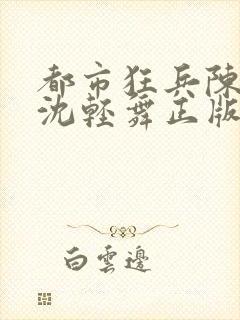 都市狂兵陳
沈輕舞正版
白雲邊